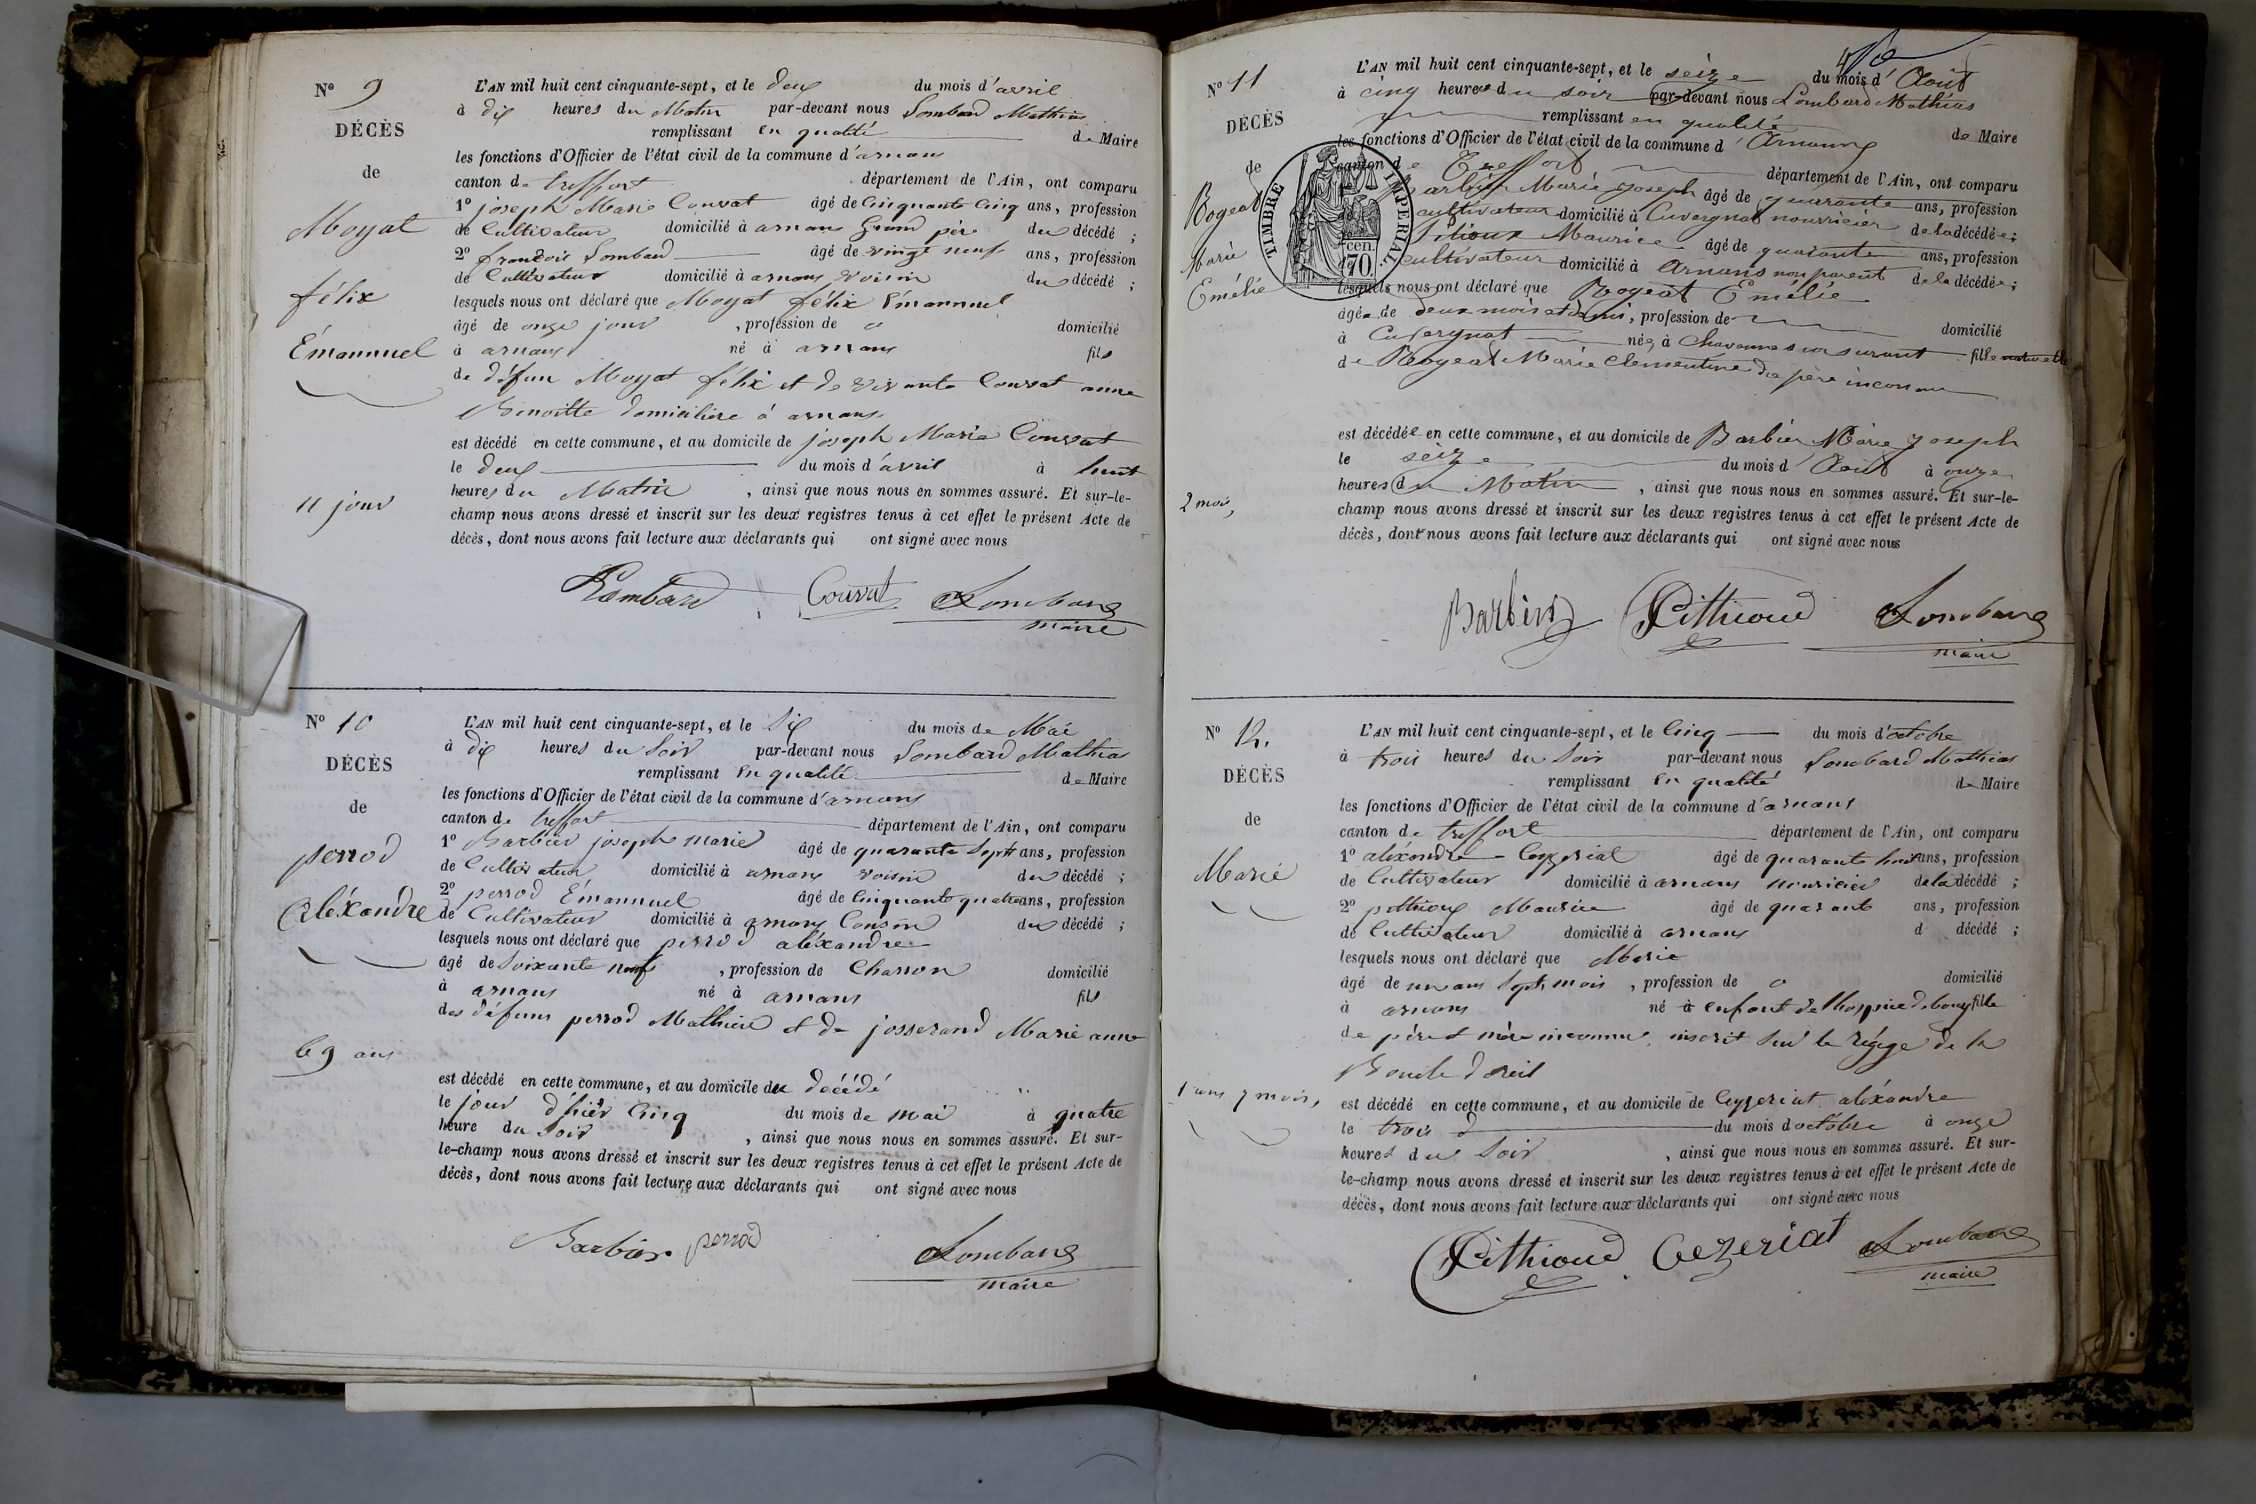 Nº 9
DÉCÈS
de
Moyat
félix
Émannuel
11 jour
L'AN mil huit cent cinquante-sept, et le deux du mois d'avril
à dix heures du Matin par-devant nous Lombard Mathias
remplissant en qualité de Maire
les fonctions d'Officier de l'état civil de la commune d'arnans
canton de treffort département de l'Ain, ont comparu
1º joseph Marie Couvat âgé de Cinquante Cinq ans, profession
de Cultivateur domicilié à arnans Grand père du décédé ;
2º françois Lombard âgé de vingt neuf ans, profession
de Cultivateur domicilié à arnans voisin du décédé ;
lesquels nous ont déclaré que Moyat félix Émannuel
âgé de onze jour , profession de o domicilié
à arnans né à arnans fils
de défun Moyat félix et de vivante Couvat anne
Benoitte domicilière à arnans
est décédé en cette commune, et au domicile de joseph Marie Couvat
le deux du mois d'avril à huit
heures du Matin , ainsi que nous nous en sommes assuré. Et sur-le-
champ nous avons dressé et inscrit sur les deux registres tenus à cet effet le présent Acte de
décès, dont nous avons fait lecture aux déclarants qui ont signé avec nous
Lombard Couvat Lombard
maire
Nº 10
DÉCÈS
de
perrod
aléxandre
69 ans
L'AN mil huit cent cinquante-sept, et le Six du mois de Mai
à dix heures du Soir par-devant nous Lombard Mathias
remplissant en qualité de Maire
les fonctions d'Officier de l'état civil de la commune d'arnans
canton de treffort département de l'Ain, ont comparu
1º Barbier joseph marie âgé de quarante Sept ans, profession
de Cultivateur domicilié à arnans voisin du décédé ;
2º perrod Émannuel âgé de Cinquante quatre ans, profession
de Cultivateur domicilié à arnans Cousin du décédé ;
lesquels nous ont déclaré que perrod aléxandre
âgé de Soixante neuf , profession de Charron domicilié
à arnans né à arnans fils
des défuns perrod Mathieu et de josserand Marie anne
est décédé en cette commune, et au domicile du décédé
le jour d'hièr Cinq du mois de mai à quatre
heure du Soir , ainsi que nous nous en sommes assuré. Et sur-
le-champ nous avons dressé et inscrit sur les deux registres tenus à cet effet le présent Acte de
décès, dont nous avons fait lecture aux déclarants qui ont signé avec nous
Barbier perrod Lombard
maire
Nº 11
DÉCÈS
de
Bogeat
Marie
Emélie
2 mois,
L'AN mil huit cent cinquante-sept, et le seize du mois d'Août
à cinq heures du soir par-devant nous Lombard Mathias
remplissant en qualité de Maire
les fonctions d'Officier de l'état civil de la commune d'Arnans
canton de Treffort département de l'Ain, ont comparu
Barbier Marie Joseph âgé de quarante ans, profession
cultivateur domicilié à Cuvergnat nourricier de la décédée ;
Pitioux Maurice âgé de quarante ans, profession
de cultivateur domicilié à Arnans non parent de la décédée ;
lesquels nous ont déclaré que Bogeat Emélie
âgée de deux mois et demi, profession de domicilié
à Cuvergnat née à Chavannes sur surant fille naturelle
de Bogeat Marie Clémentine du père inconnu
est décédée en cette commune, et au domicile de Barbier Marie Joseph
le seize du mois d'Août à onze
heures du Matin , ainsi que nous nous en sommes assuré. Et sur-le-
champ nous avons dressé et inscrit sur les deux registres tenus à cet effet le présent Acte de
décès, dont nous avons fait lecture aux déclarants qui ont signé avec nous
TIMBRE IMPERIAL.
cen.
70
Barbier Pithioud Lombard
maire
Nº 12.
DÉCÈS
de
Marie
1 ans 7 mois,
L'AN mil huit cent cinquante-sept, et le Cinq du mois d'octobre
à trois heures du Soir par-devant nous Lombard Mathias
remplissant en qualité de Maire
les fonctions d'Officier de l'état civil de la commune d'arnans
canton de treffort département de l'Ain, ont comparu
1º aléxandre Ceyzeriat âgé de quarante huit ans, profession
de Cultivateur domicilié à arnans nouricier de la décédé ;
2º pithioux Maurice âgé de quarante ans, profession
de Cultivateur domicilié à arnans d décédé ;
lesquels nous ont déclaré que Marie
âgé de un ans Sept mois , profession de o domicilié
à arnans né à enfant de l'hospice de bourg fille
de père et mère inconnu, inscrit Sur le
Boucle d'oreil
est décédé en cette commune, et au domicile de Ceyzeriat aléxandre
le trois du mois d'octobre à onze
heures du Soir , ainsi que nous nous en sommes assuré. Et sur-
le-champ nous avons dressé et inscrit sur les deux registres tenus à cet effet le présent Acte de
décès, dont nous avons fait lecture aux déclarants qui ont signé avec nous
Pithioud Cezeriat Lombard
maire